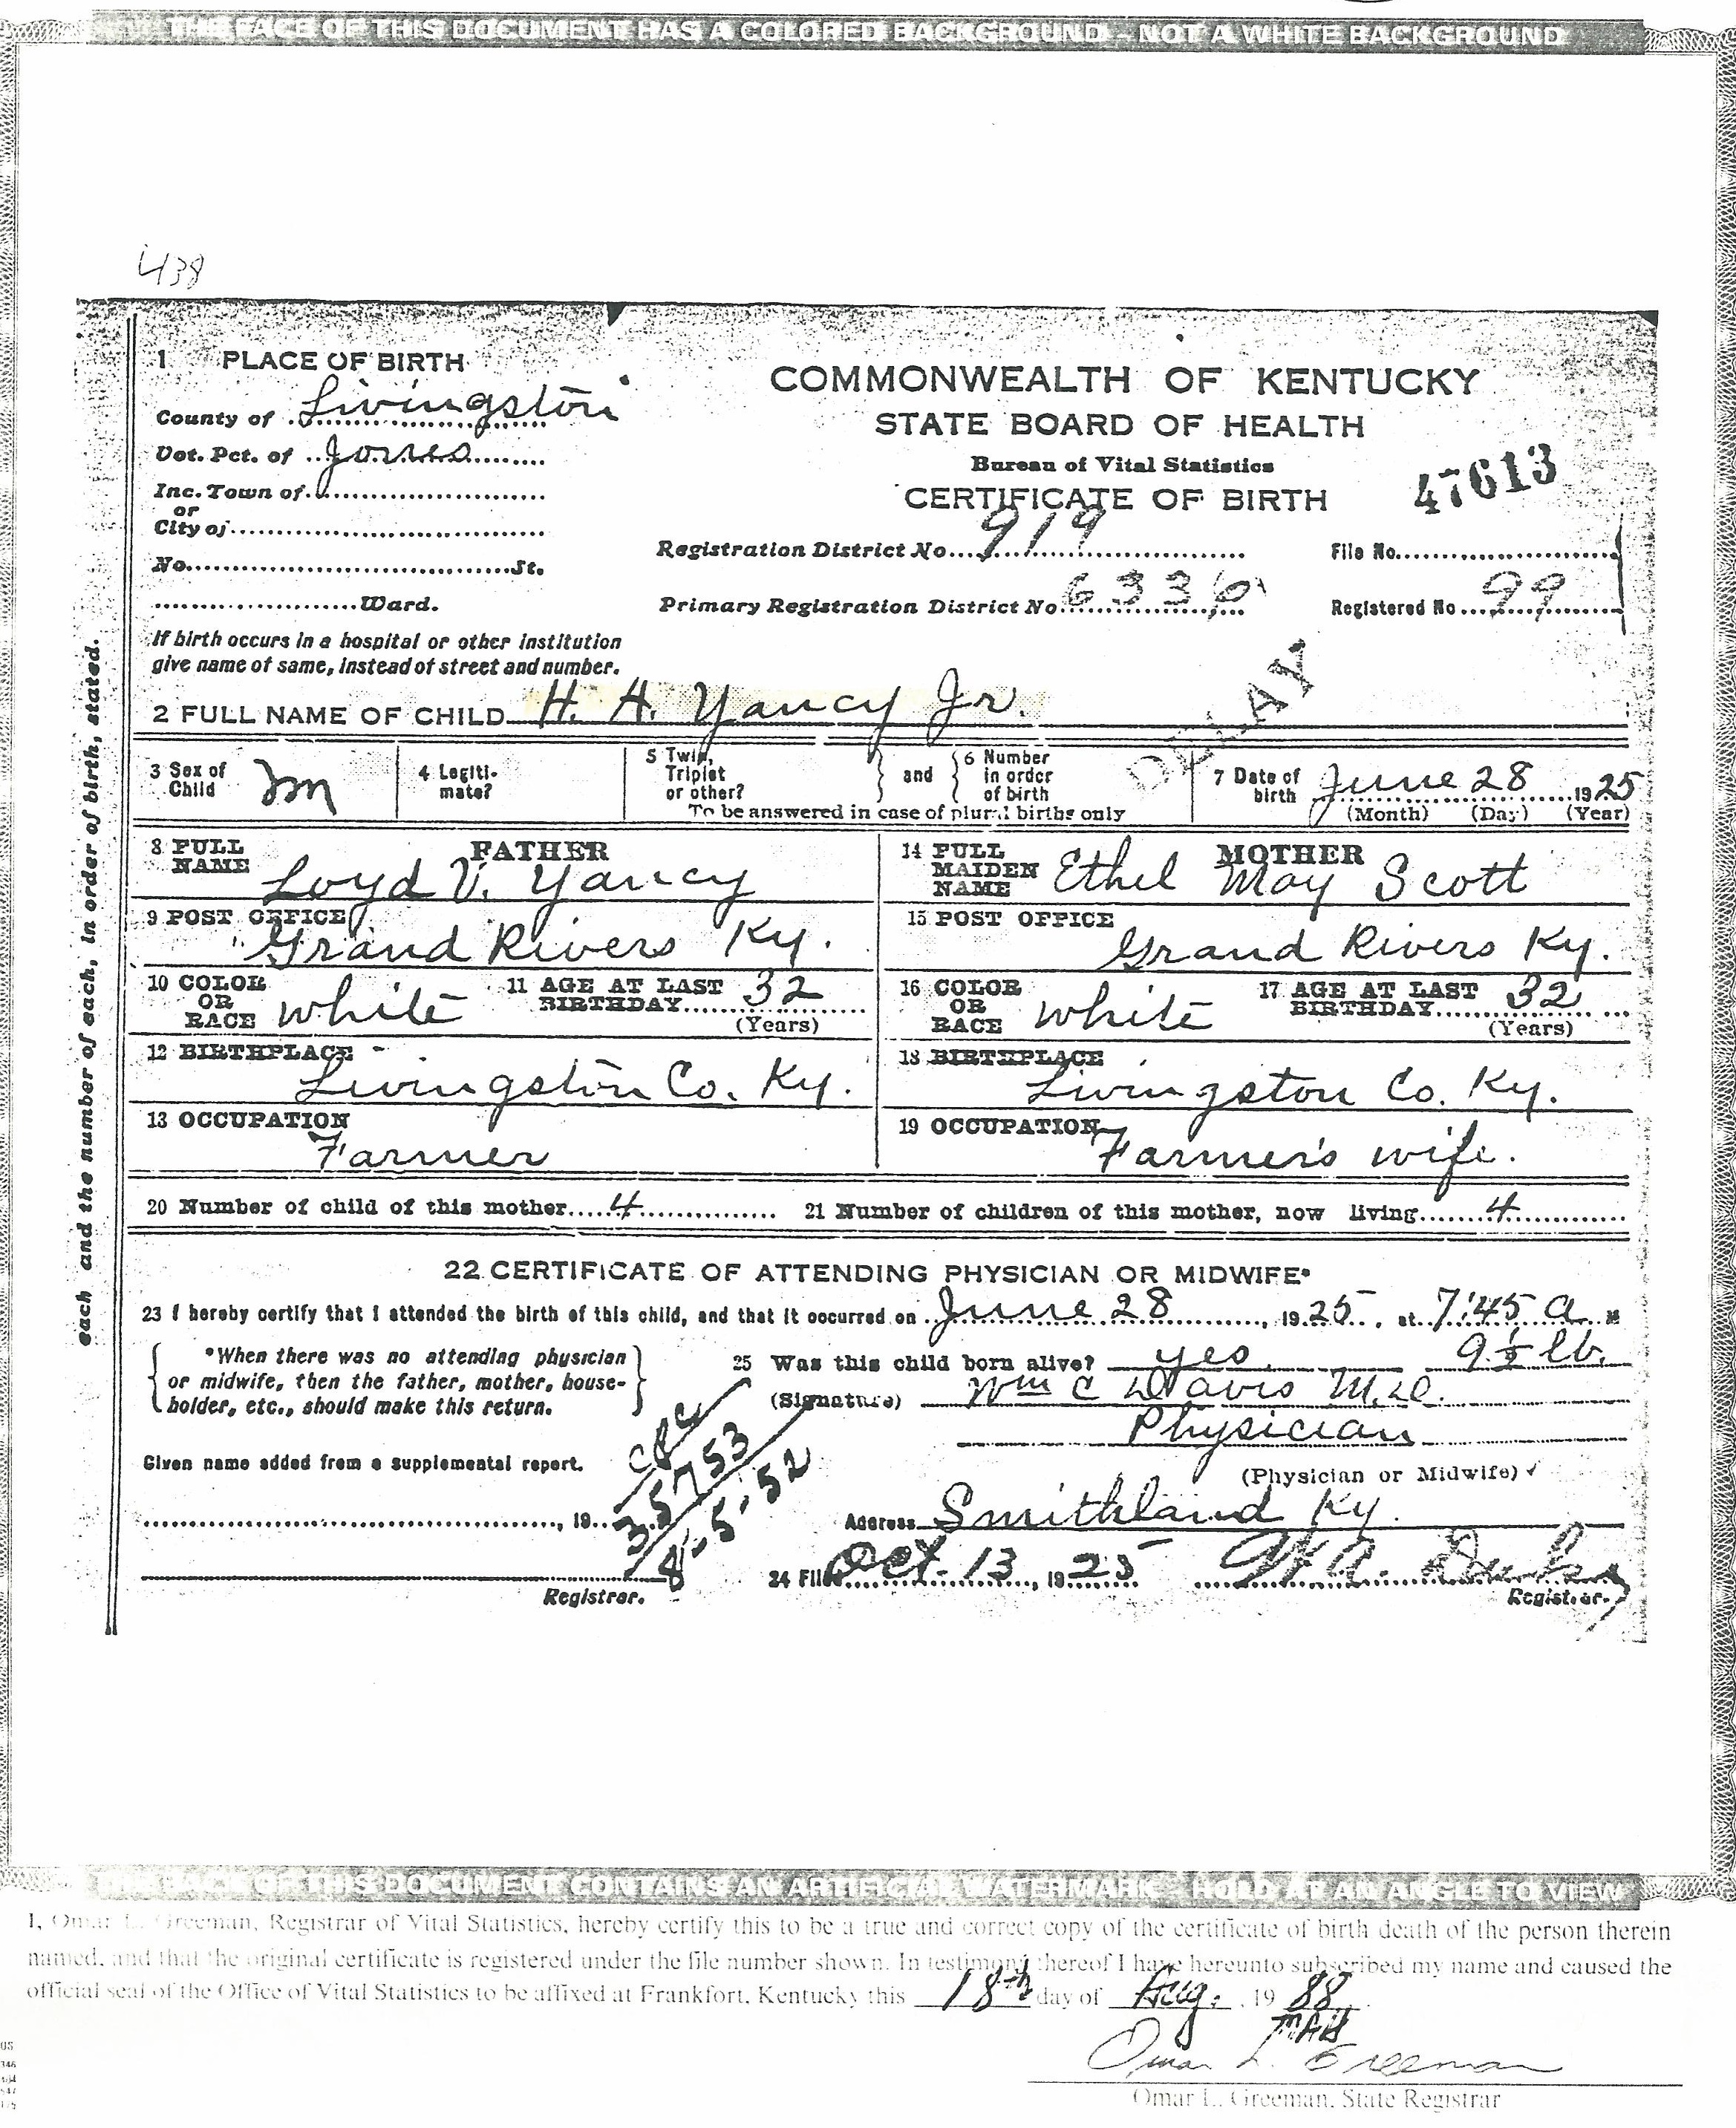 THE FACE OF THIS DOCUMENT HAS A COLORED BACKGROUND - NOT A WHITE BACKGROUND
438
1 PLACE OF BIRTH
County of Livingston
Vot. Pct. of Jones
Inc. Town of
or
City of
No. St.
Ward.
If birth occurs in a hospital or other institution
give name of same, instead of street and number.
COMMONWEALTH OF KENTUCKY
STATE BOARD OF HEALTH
Bureau of Vital Statistics
CERTIFICATE OF BIRTH
47613
Registration District No. 919
File No.
Primary Registration District No 6336
Registered No 99
DELAY
2 FULL NAME OF CHILD H. A. Yancy Jr.
3 Sex of Child m
4 Legiti-mate?
5 Twin, Triplet or other?
and
6 Number in order of birth
To be answered in case of plural births only
7 Date of birth June 28 1925
(Month) (Day) (Year)
FATHER
8 FULL NAME Loyd V. Yancy
9 POST OFFICE Grand Rivers Ky.
10 COLOR OR RACE white
11 AGE AT LAST BIRTHDAY 32
(Years)
12 BIRTHPLACE Livingston Co. Ky.
13 OCCUPATION Farmer
MOTHER
14 FULL MAIDEN NAME Ethel May Scott
15 POST OFFICE Grand Rivers Ky.
16 COLOR OR RACE white
17 AGE AT LAST BIRTHDAY 32
(Years)
18 BIRTHPLACE Livingston Co. Ky.
19 OCCUPATION Farmer's wife.
20 Number of child of this mother 4
21 Number of children of this mother, now living 4
22 CERTIFICATE OF ATTENDING PHYSICIAN OR MIDWIFE*
23 I hereby certify that I attended the birth of this child, and that it occurred on June 28, 1925, at 7:45 a M
*When there was no attending physician
or midwife, then the father, mother, house-
holder, etc., should make this return.
25 Was this child born alive? yes. 9½ lb.
(Signature) Wm C Davis M.D.
Physician
(Physician or Midwife)
Given name added from a supplemental report.
, 19
Registrar.
35753
8-5-52
Address Smithland Ky.
24 Filed Oct. 13, 1925
Registrar.
each and the number of each, in order of birth, stated.
THE BACK OF THIS DOCUMENT CONTAINS AN ARTIFICIAL WATERMARK - HOLD AT AN ANGLE TO VIEW
I, Omar L. Greeman, Registrar of Vital Statistics, hereby certify this to be a true and correct copy of the certificate of birth death of the person therein
named, and that the original certificate is registered under the file number shown. In testimony thereof I have hereunto subscribed my name and caused the
official seal of the Office of Vital Statistics to be affixed at Frankfort, Kentucky this 18th day of Aug. , 19 88.
Omar L. Greeman
Omar L. Greeman, State Registrar